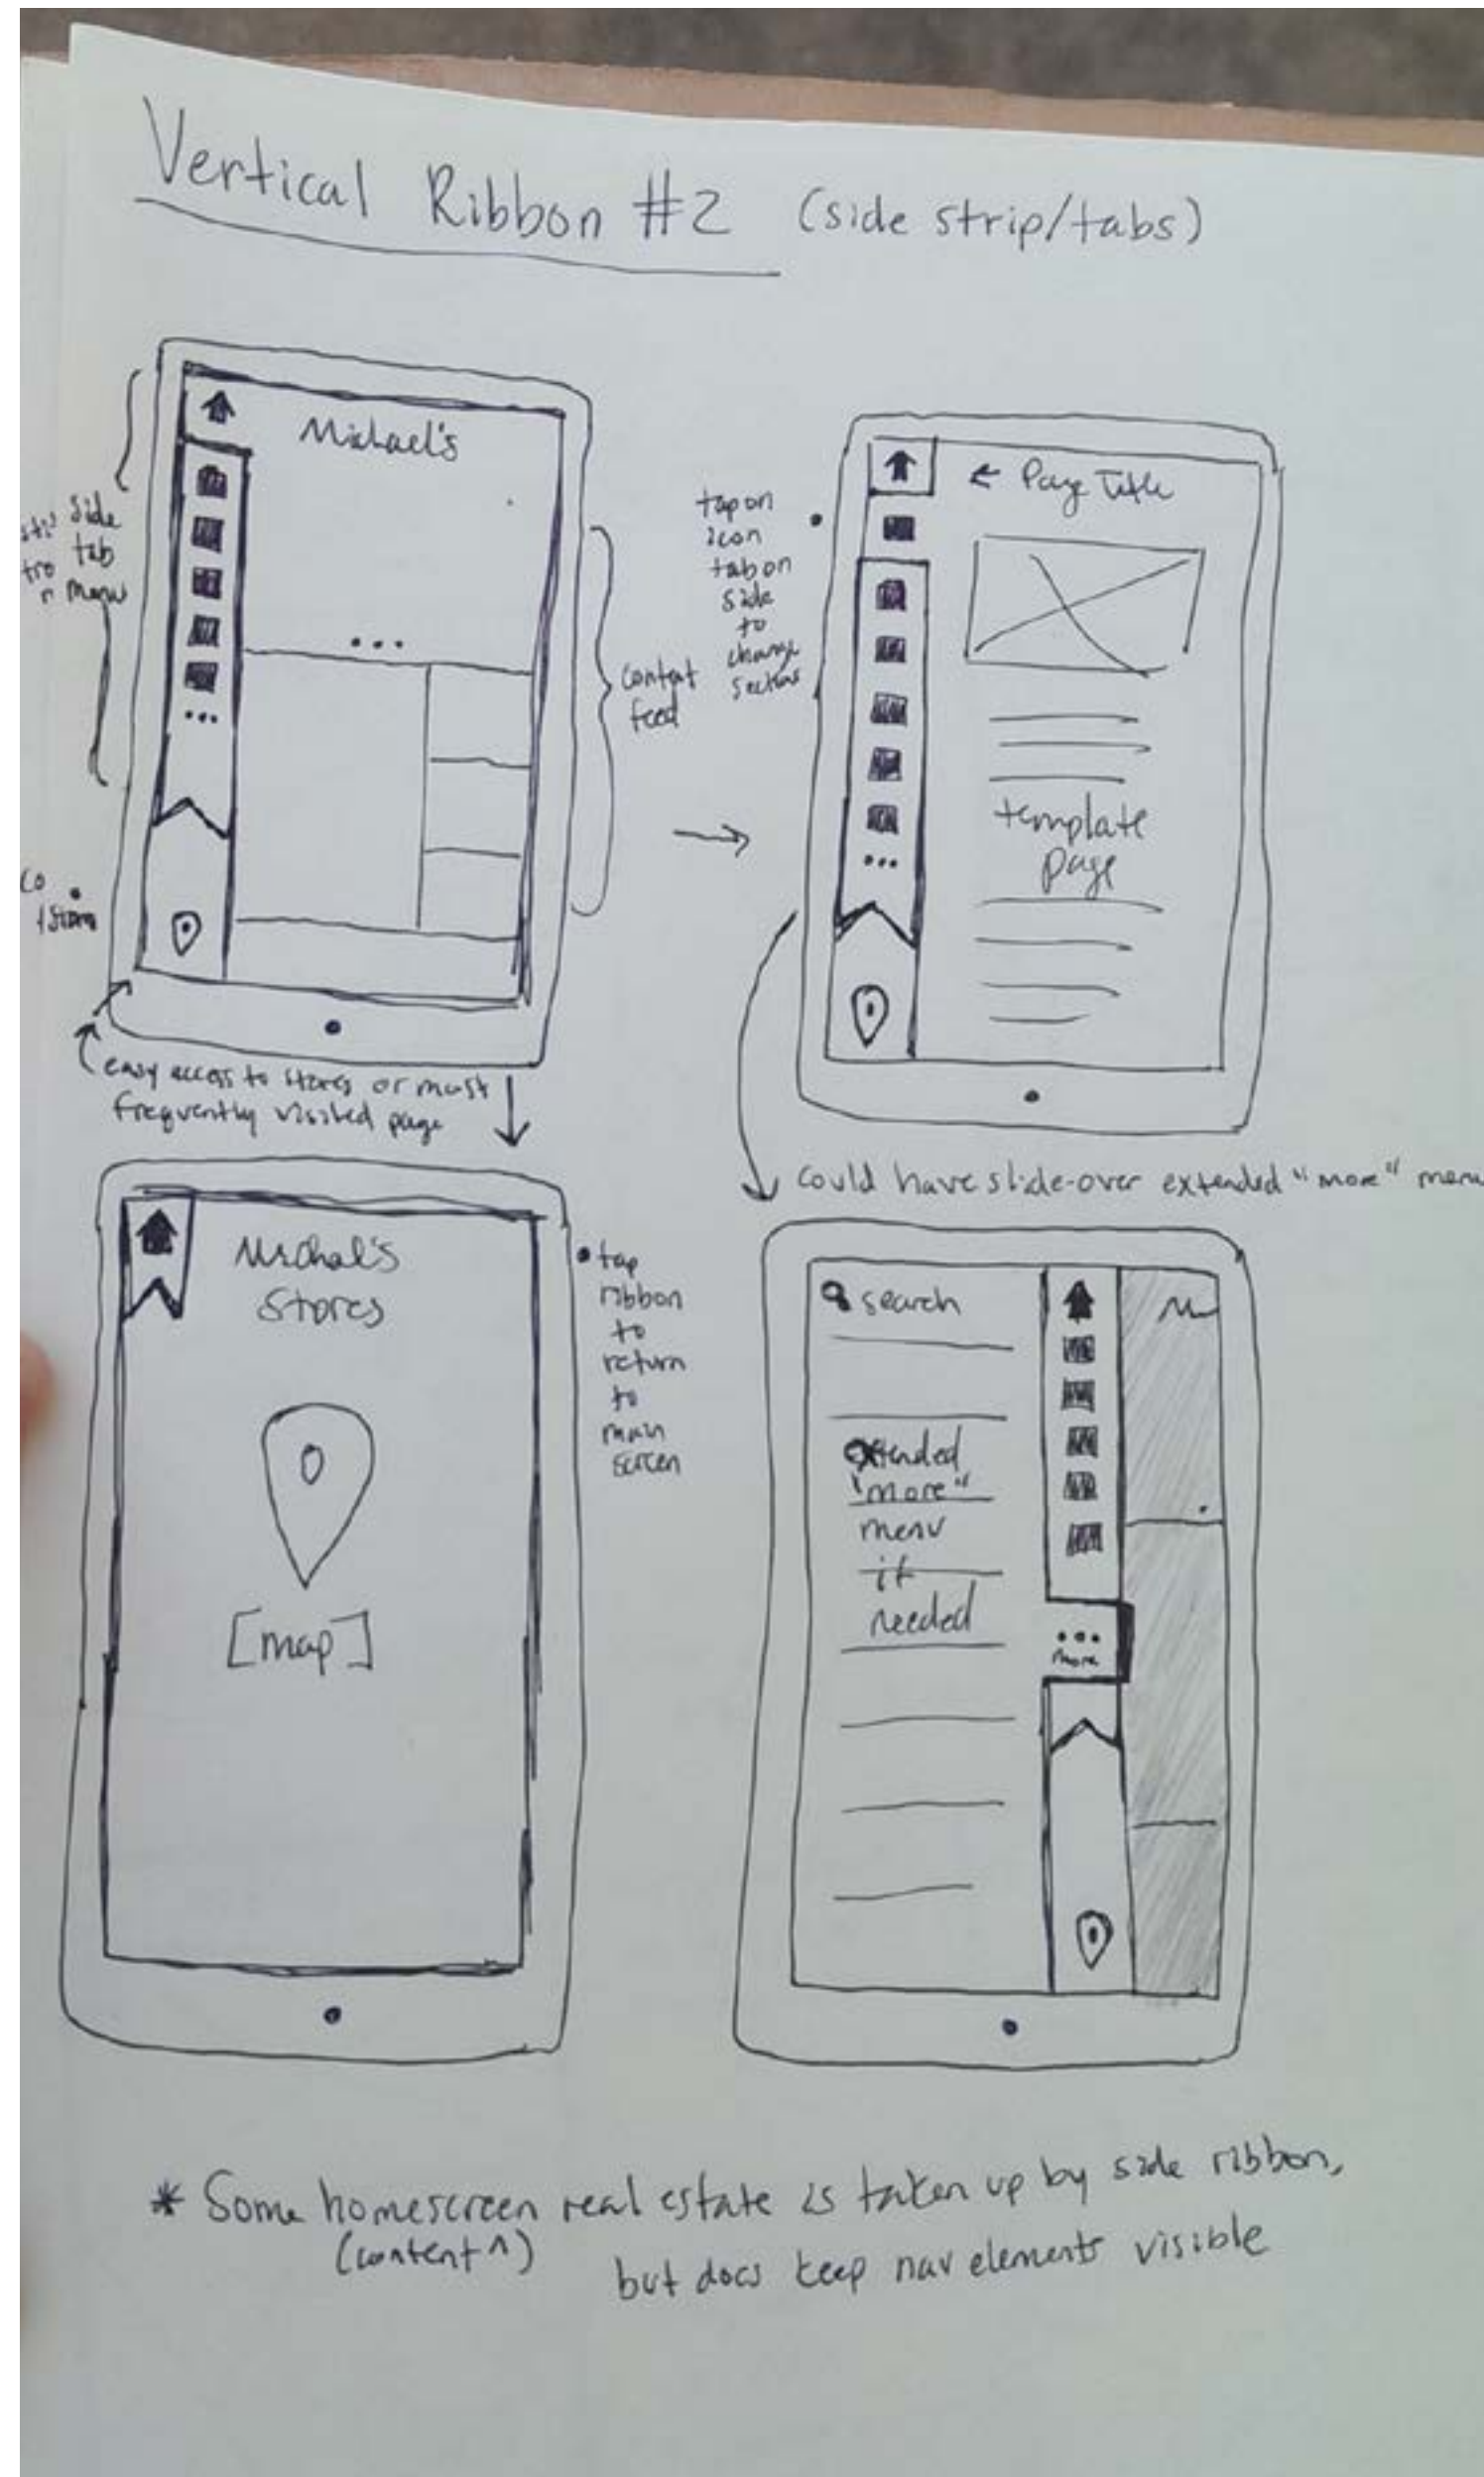 Vertical Ribbon #2 (side strip/tabs)
Michael's
side
tab
menu
content
feed
easy access to stores or most
frequently visited page
tap on
icon
tab on
side
to
change
sections
← Page Title
template
page
could have slide-over extended "more" menu
Michael's
Stores
[map]
• tap
ribbon
to
return
to
main
screen
search
extended
"more"
menu
if
needed
...
more
* Some homescreen real estate is taken up by side ribbon,
(content ^)
but does keep nav elements visible